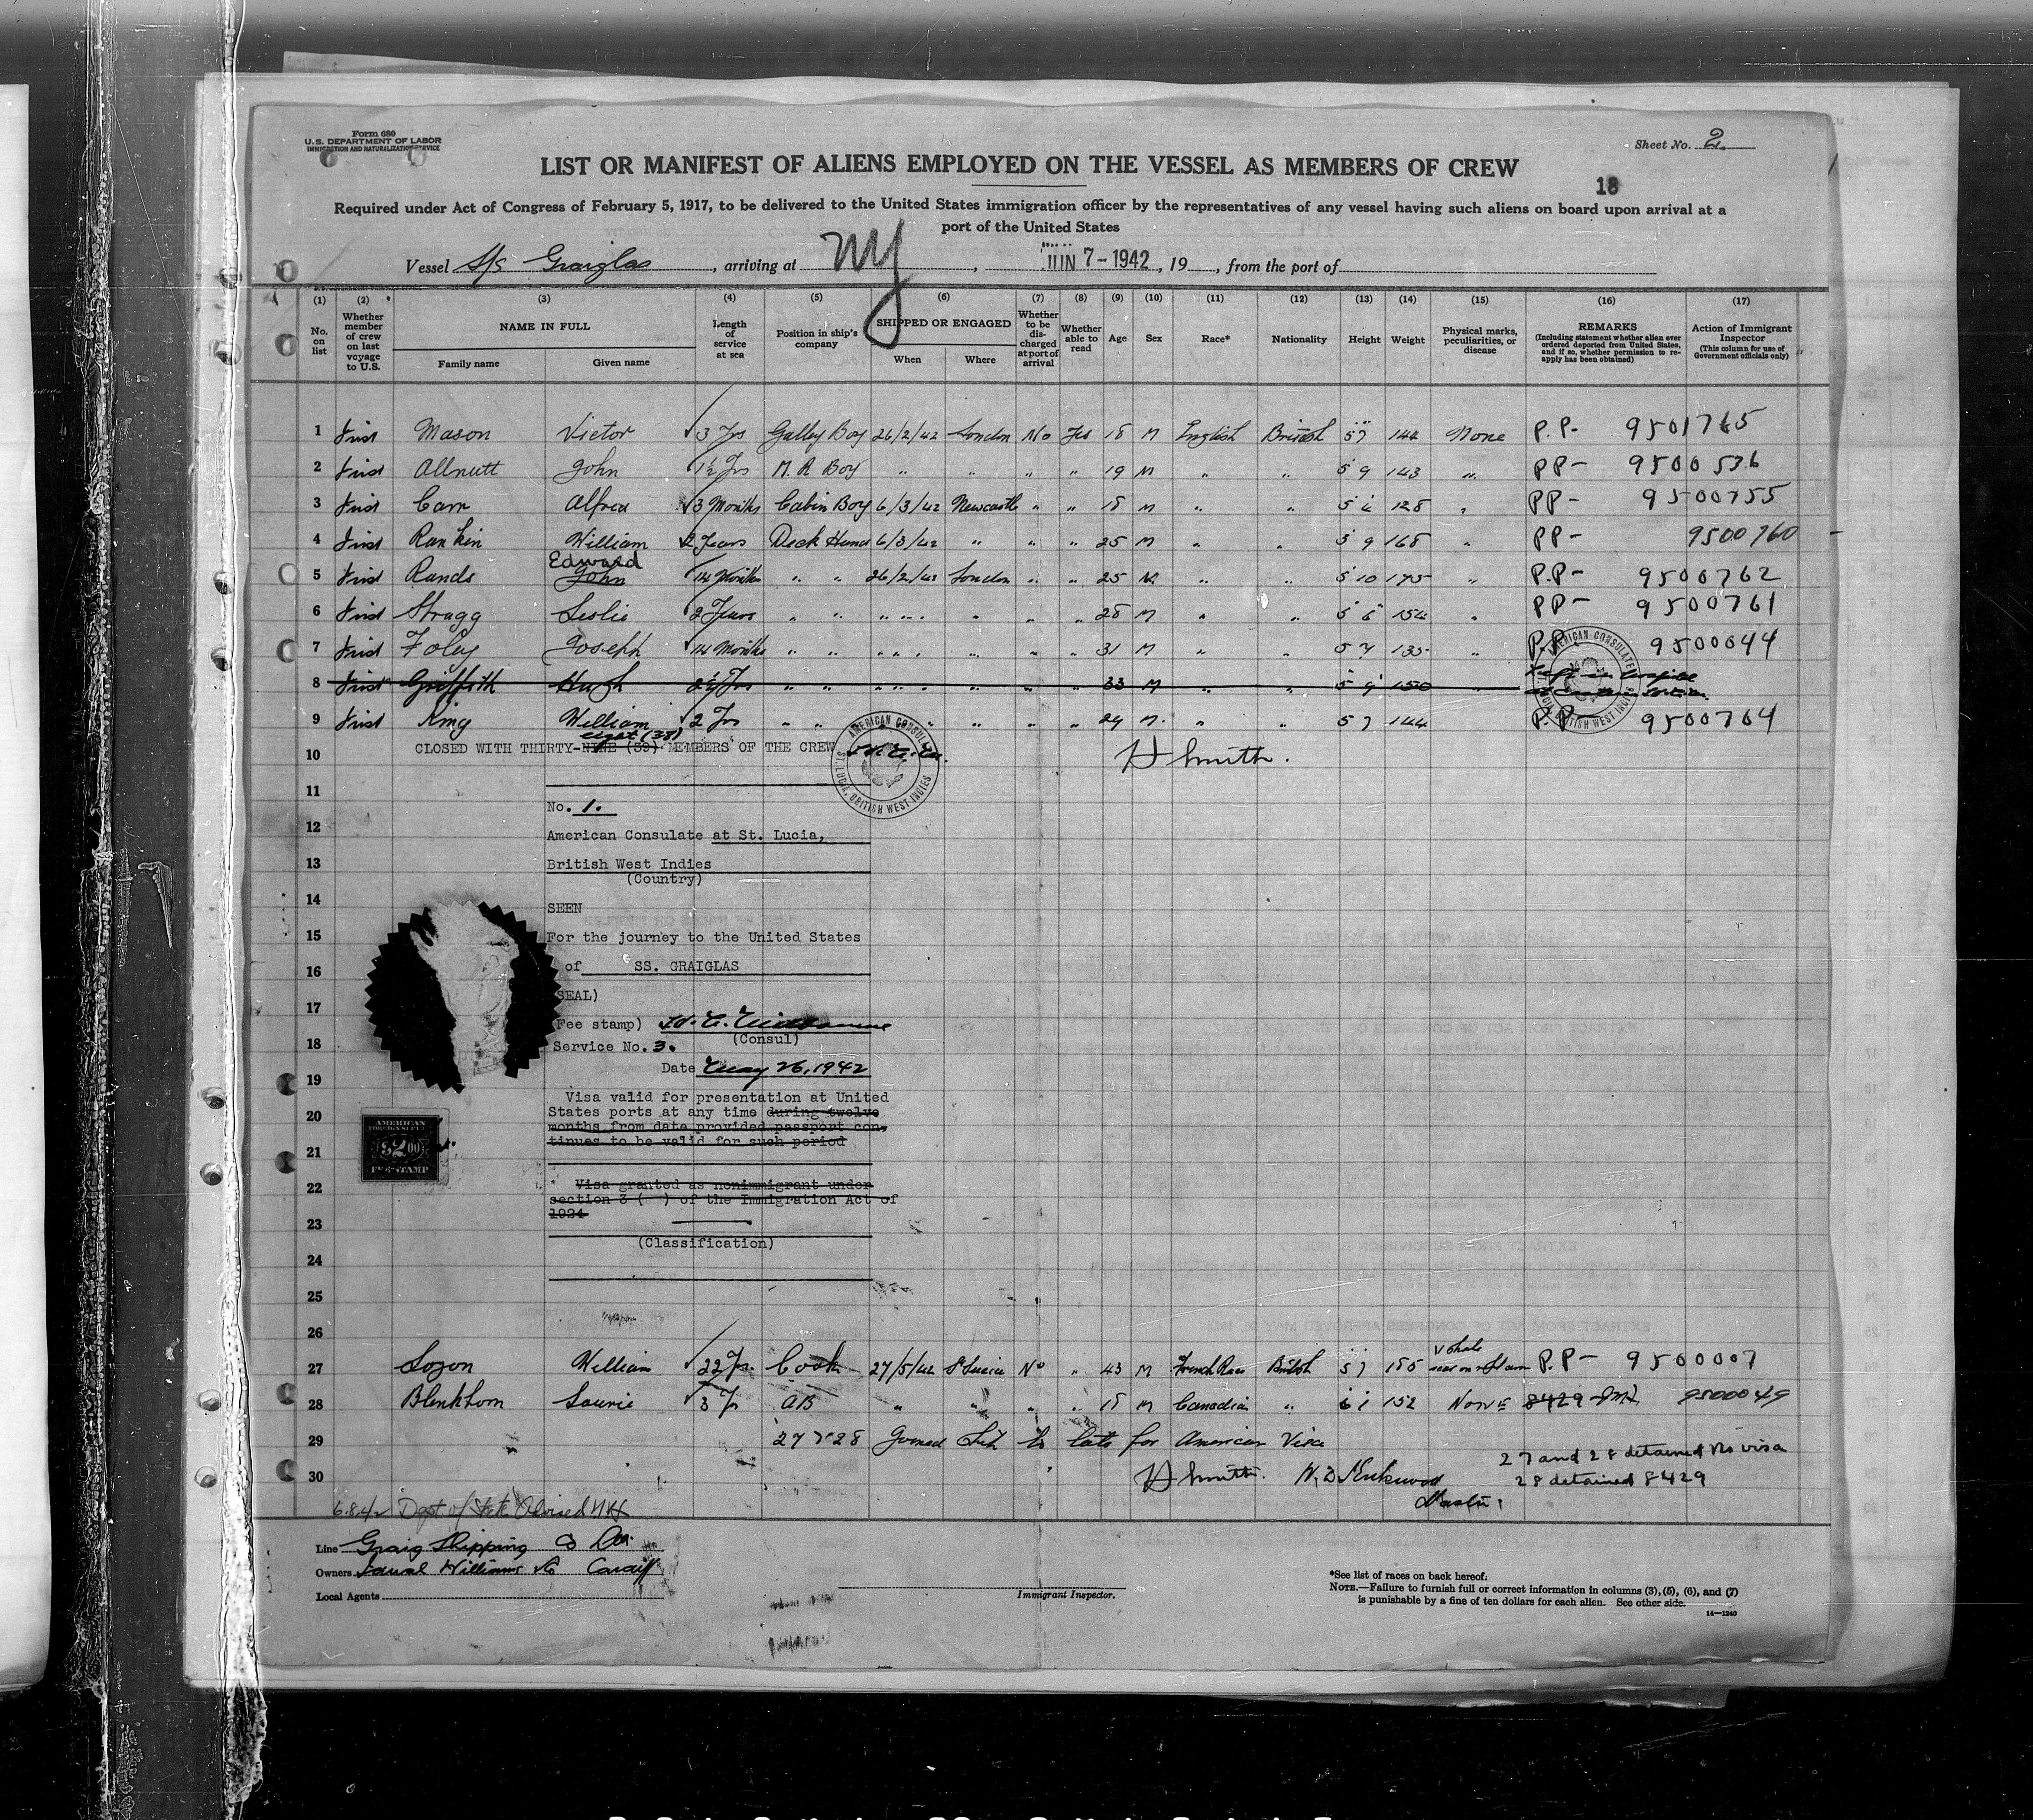 Form 680
U.S. DEPARTMENT OF LABOR
IMMIGRATION AND NATURALIZATION SERVICE
Sheet No. 2
LIST OR MANIFEST OF ALIENS EMPLOYED ON THE VESSEL AS MEMBERS OF CREW
18
Required under Act of Congress of February 5, 1917, to be delivered to the United States immigration officer by the representatives of any vessel having such aliens on board upon arrival at a
port of the United States
Vessel S/S Graiglas, arriving at NY, JUN 7-1942, 19, from the port of
(1) (2) (3) (4) (5) (6) (7) (8) (9) (10) (11) (12) (13) (14) (15) (16) (17)
No. on list Whether member of crew on last voyage to U.S. NAME IN FULL Family name Given name Length of service at sea Position in ship's company SHIPPED OR ENGAGED When Where Whether to be discharged at port of arrival Whether able to read Age Sex Race* Nationality Height Weight Physical marks, peculiarities, or disease REMARKS (Including statement whether alien ever ordered deported from United States, and if so, whether permission to reapply has been obtained) Action of Immigrant Inspector (This column for use of Government officials only)
1 First Mason Victor 3 Yrs Galley Boy 26/2/42 London No Yes 18 M English British 5 7 144 None P.P- 9501765
2 First Allnutt John 1½ Yrs M. R Boy " " " " 19 M " " 5 9 143 " PP- 9500536
3 First Carr Alfred 3 Months Cabin Boy 6/3/42 Newcastle " " 18 M " " 5 6 128 " PP- 9500755
4 First Rankin William 2 Years Deck Hand 6/3/42 " " " 25 M " " 5 9 168 " PP- 9500760
Edward
5 First Rands John 14 Months " " 26/2/42 London " " 25 M " " 5 10 175 " P.P- 9500762
6 First Stragg Leslie 2 Years " " " " " " 28 M " " 5 6 154 " PP- 9500761
7 First Foley Joseph 14 Months " " " " " " 31 M " " 5 7 135 " P.P 9500044
8 First Griffith Hugh 2½ Yrs " " " " " " 33 M " " 5 9 150 "
9 First King William 2 Yrs " " " " " 29 M. " " 5 7 144 P.P 9500764
eight (38)
10 CLOSED WITH THIRTY-NINE (39) MEMBERS OF THE CREW H Smith.
AMERICAN CONSULATE ST. LUCIA, BRITISH WEST INDIES
11
No. 1.
12 American Consulate at St. Lucia,
13 British West Indies
(Country)
14 SEEN
15 For the journey to the United States
16 of SS. GRAIGLAS
(SEAL)
17 (Fee stamp)
(Consul)
18 Service No. 3.
19 Date May 26, 1942
Visa valid for presentation at United
20 States ports at any time during twelve
months from date provided passport con-
21 tinues to be valid for such period
AMERICAN FOREIGN SERVICE $2.00 FEE STAMP
22 Visa granted as nonimmigrant under
section 3 ( ) of the Immigration Act of
1924
23
(Classification)
24
25
26
27 Sozon William 22 Yrs Cook 27/5/42 St Lucia No " 43 M French Race British 5 7 155 P.P- 9500007
28 Blenkhorn Laurie 3 Yr AB " " " " 18 M Canadian " 6 1 152 None 8429 9500049
29 27 & 28 Joined Ship to late for American Visa
27 and 28 detained No visa
30 H Smith. Master. 28 detained 8429
6.8.42 Dept of State Advised
Line Graig Shipping Co Ltd
Owners Idwal Williams & Co Cardiff
Local Agents
Immigrant Inspector.
*See list of races on back hereof.
NOTE.—Failure to furnish full or correct information in columns (3), (5), (6), and (7)
is punishable by a fine of ten dollars for each alien. See other side.
14—1240